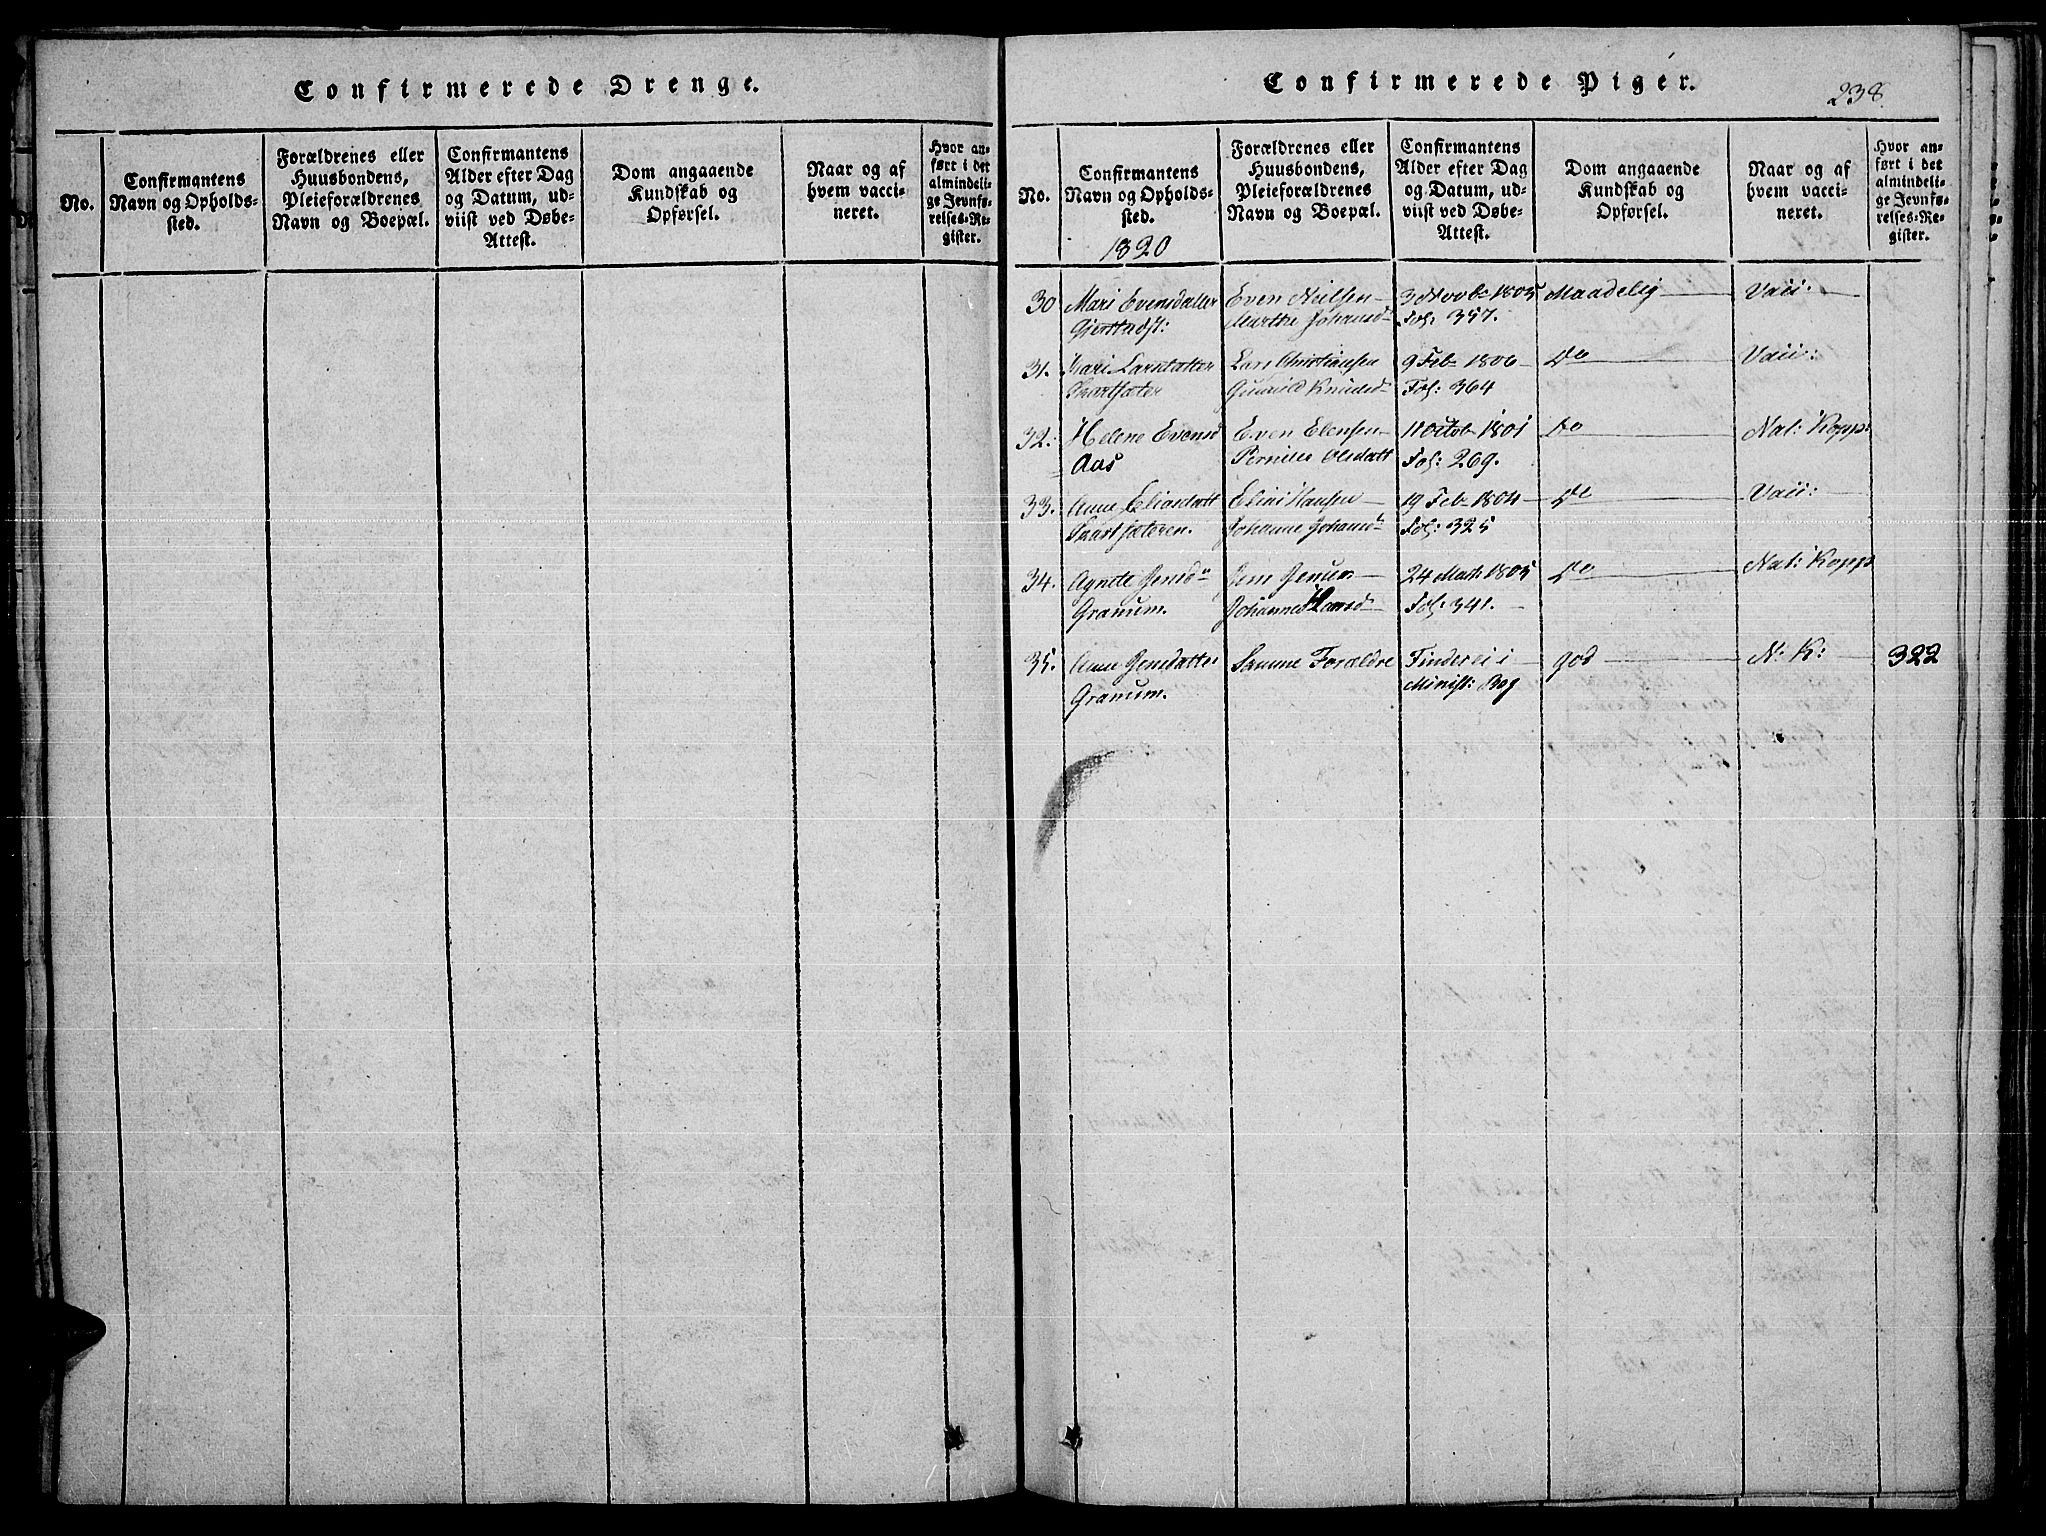 Confirmerede Drenge.
No.
Confirmantens
Navn og Opholds-
sted.
Forældrenes eller
Huusbondens,
Pleieforældrenes
Navn og Boepæl.
Confirmantens
Alder efter Dag
og Datum, ud-
viist ved Døbe-
Attest.
Dom angaaende
Kundskab og
Opførsel.
Naar og af
hvem vacci-
neret.
Hvor an-
ført i det
almindeli-
ge Jevnfø-
relses-Re-
gister.
Confirmerede Piger.
238.
No.
Confirmantens
Navn og Opholds-
sted.
1820
Forældrenes eller
Huusbondens,
Pleieforældrenes
Navn og Boepæl.
Confirmantens
Alder efter Dag
og Datum, ud-
viist ved Døbe-
Attest.
Dom angaaende
Kundskab og
Opførsel.
Naar og af
hvem vacci-
neret.
Hvor an-
ført i det
almindeli-
ge Jevnfø-
relses-Re-
gister.
30 Mari Evensdatter Even Nielsen 3 Novb 1805 Maadelig Vaii:
Marthe Johansd Fol: 357.
31. Kari Larsdatter Lars Christiansen 9 Feb 1806 Do Vaii:
Gunild Knudsd Fol: 364
32. Helene Evensd Even Elensen 11 Octob 1801 Do Nat: Kopp:
Aas Pernille Olsdatt Fol: 269.
33. Anne Eliasdatt Elias Hansen 19 Feb 1804 Do Vaii:
Johanne Johansd Fol: 325
34. Agnete Jensd Jens Jensen 24 Mart 1805 Do Nat: Kopp
Granum. Johanne Hansd Fol: 341.
35. Anne Jensdatter Samme Forældre Findes ei i god N: K: 322
Granum. Minist: Bog